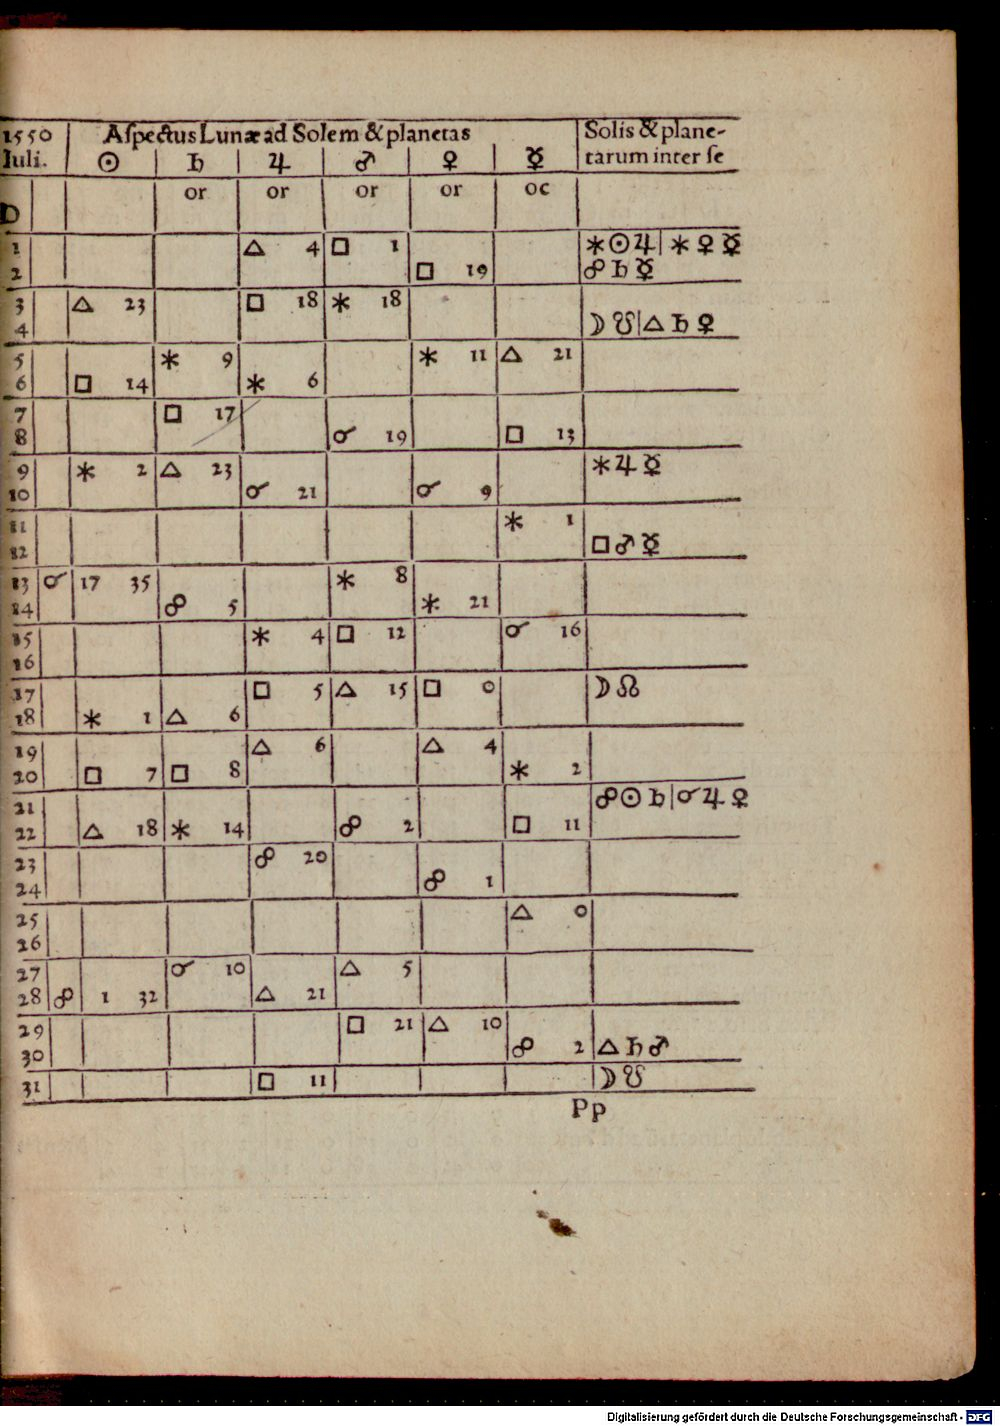 1550 Aſpectus Lunæ ad Solem & planetas Solis & plane-
Iuli. ☉ ♄ ♃ ♂ ♀ ☿ tarum inter ſe
or or or or oc
D
1 △ 4 □ 1 ⚹ ☉ ♃ | ⚹ ♀ ☿
2 □ 19 ☍ ♄ ☿
3 △ 23 □ 18 ⚹ 18
4 ☽ ☋ | △ ♄ ♀
5 ⚹ 9 ⚹ 11 △ 21
6 □ 14 ⚹ 6
7 □ 17
8 ☌ 19 □ 13
9 ⚹ 2 △ 23 ⚹ ♃ ☿
10 ☌ 21 ☌ 9
11 ⚹ 1
12 □ ♂ ☿
13 ☌ 17 35 ⚹ 8
14 ☍ 5 ⚹ 21
15 ⚹ 4 □ 12 ☌ 16
16
17 □ 5 △ 15 □ 0 ☽ ☊
18 ⚹ 1 △ 6
19 △ 6 △ 4
20 □ 7 □ 8 ⚹ 2
21 ☍ ☉ ♄ | ☌ ♃ ♀
22 △ 18 ⚹ 14 ☍ 2 □ 11
23 ☍ 20
24 ☍ 1
25 △ 0
26
27 ☌ 10 △ 5
28 ☍ 1 32 △ 21
29 □ 21 △ 10
30 ☍ 2 △ ♄ ♂
31 □ 11 ☽ ☋
Pp
Digitalisierung gefördert durch die Deutsche Forschungsgemeinschaft - DFG